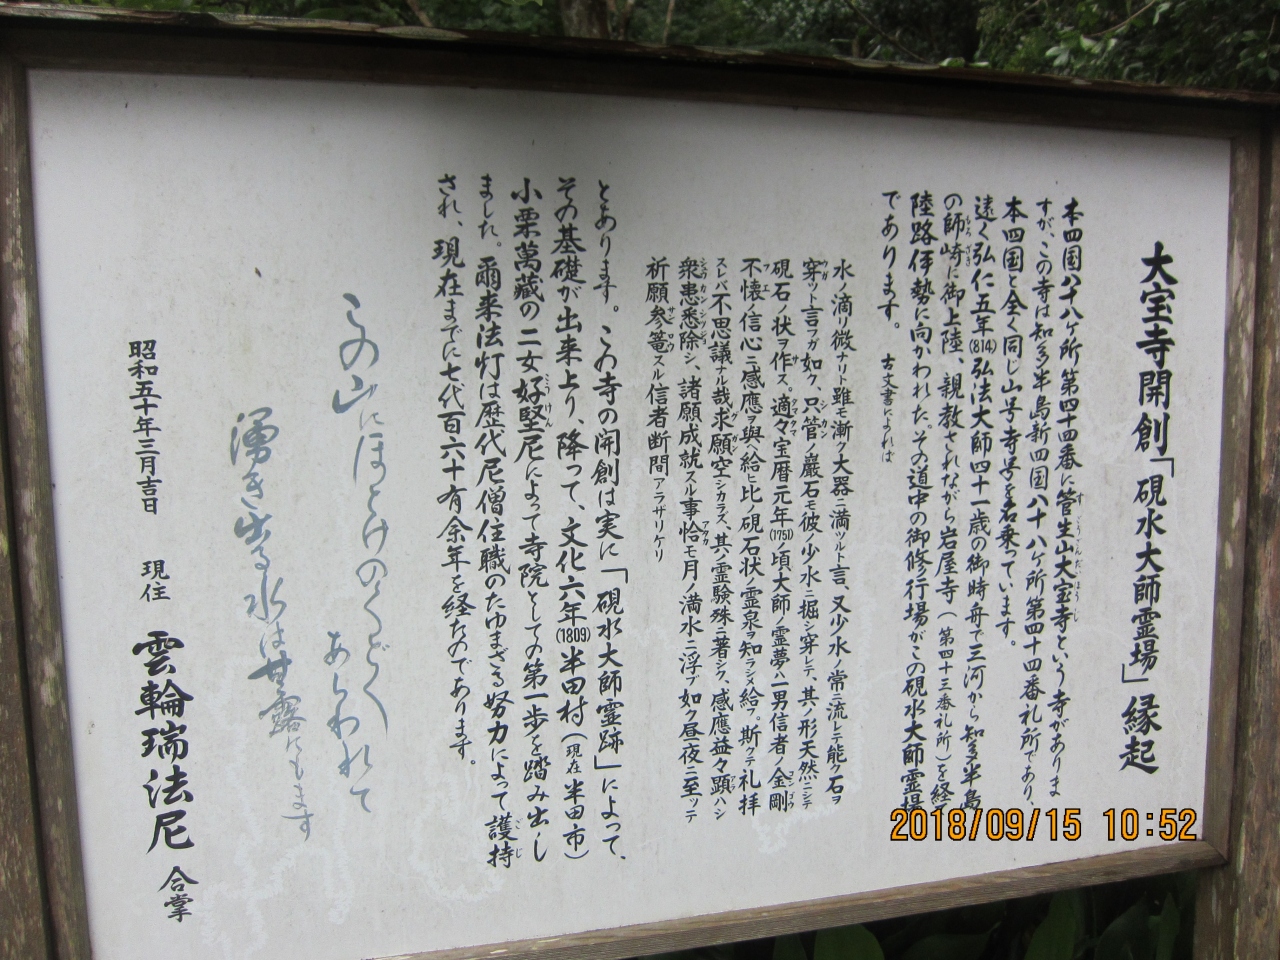 大宝寺開創「硯水大師霊場」縁起
本四国八十八ヶ所第四十四番に菅生山大宝寺という寺がありま
すが、この寺は知多半島新四国八十八ヶ所第四十四番札所であり、
本四国と全く同じ山号寺号を名乗っています。
遠く弘仁五年(814)弘法大師四十一歳の御時舟で三河から知多半島
の師崎に御上陸、親教されながら岩屋寺(第四十三番札所)を経て
陸路伊勢に向かわれた。その道中の御修行場がこの硯水大師霊場
であります。 古文書によれば
水ノ滴リ微ナリト雖モ漸ク大器ニ満ツルト言、又少水ノ常ニ流レテ能ク石ヲ
穿ツト言フガ如ク、只管ノ巖石モ彼ノ少水ニ掘シ穿レテ、其ノ形天然ニシテ
硯石ノ状ヲ作ス。適々宝暦元年(1751)ノ頃大師ノ霊夢ハ一男信者ノ金剛
不懐ノ信心ニ感應ヲ與ヘ給ヒ比ノ硯石状ノ霊泉ヲ知ラシメ給フ。斯クテ礼拝
スレバ不思議ナル哉求願空シカラス、其ノ霊験殊ニ著シク、感應益々顕ハシ
衆患悉除シ、諸願成就スル事恰モ月ノ満水ニ浮ブ如ク昼夜ニ至ッテ
祈願参篭スル信者断間アラザリケリ
とあります。この寺の開創は実に「硯水大師霊跡」によって、
その基礎が出来上り、降って、文化六年(1809)半田村(現在半田市)
小栗萬藏の二女好堅尼によって寺院としての第一歩を踏み出し
ました。爾来法灯は歴代尼僧住職のたゆまざる努力によって護持
され、現在までに七代百六十有余年を経たのであります。
この山にほとけのくどく
あらわれて
湧き出る水は甘露にもます
昭和五十年三月吉日 現住 雲輪瑞法尼 合掌
2018/09/15 10:52